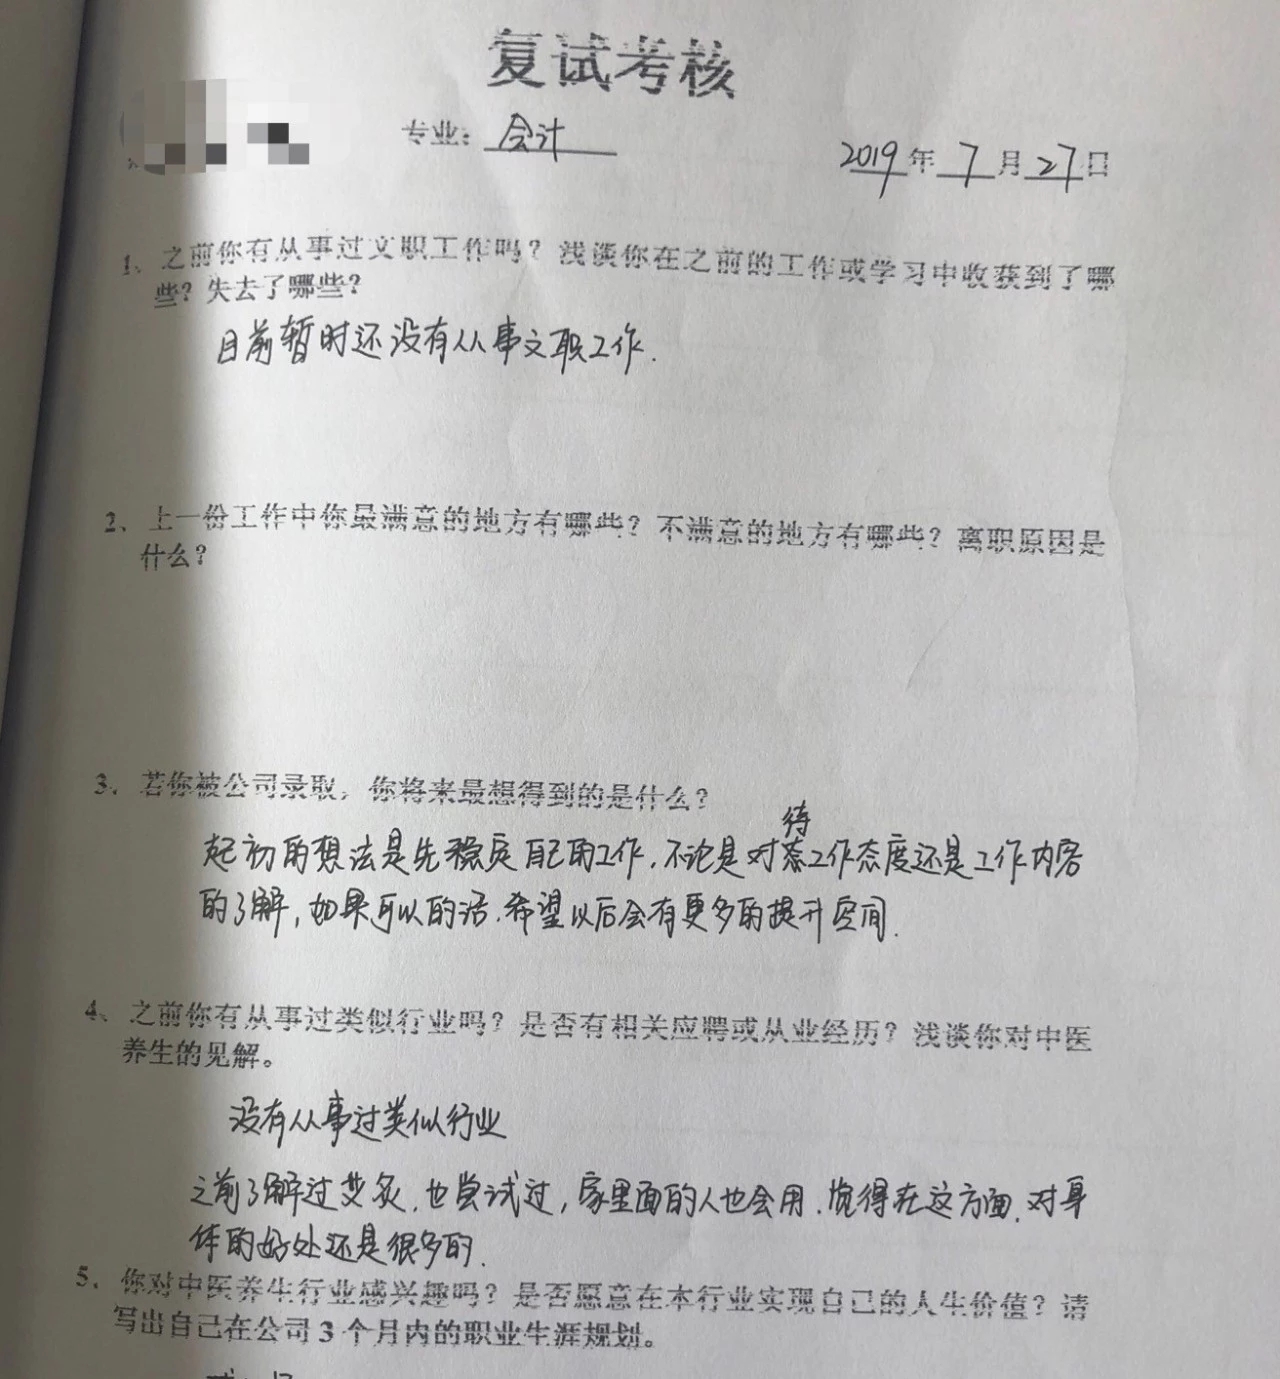 复试考核
专业：会计
2019年7月27日
1、之前你有从事过文职工作吗？浅谈你在之前的工作或学习中收获到了哪
些？失去了哪些？
目前暂时还没有从事文职工作.
2、上一份工作中你最满意的地方有哪些？不满意的地方有哪些？离职原因是
什么？
3、若你被公司录取，你将来最想得到的是什么？
待
起初的想法是先稳定自己的工作,不论是对工作态度还是工作内容
的了解,如果可以的话,希望以后会有更多的提升空间.
4、之前你有从事过类似行业吗？是否有相关应聘或从业经历？浅谈你对中医
养生的见解。
没有从事过类似行业
之前了解过艾灸,也尝试过,家里面的人也会用,觉得在这方面,对身
体的好处还是很多的.
5、你对中医养生行业感兴趣吗？是否愿意在本行业实现自己的人生价值？请
写出自己在公司3个月内的职业生涯规划。